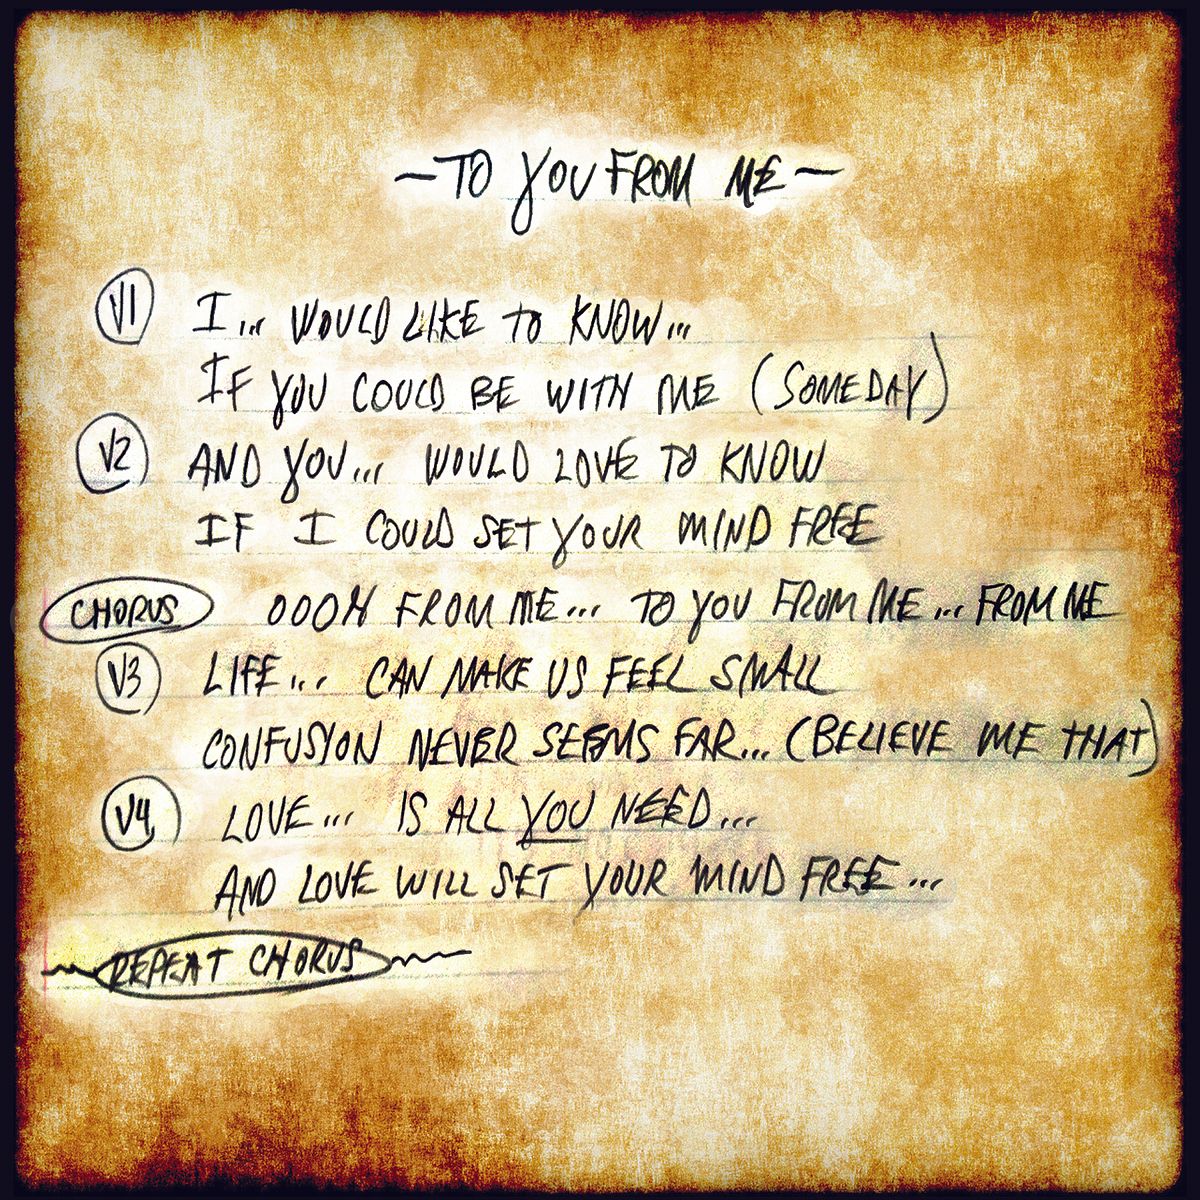 ~TO YOU FROM ME~
V1 I... WOULD LIKE TO KNOW...
IF YOU COULD BE WITH ME (SOMEDAY)
V2 AND YOU... WOULD LOVE TO KNOW
IF I COULD SET YOUR MIND FREE
CHORUS OOOH FROM ME... TO YOU FROM ME... FROM ME
V3 LIFE... CAN MAKE US FEEL SMALL
CONFUSION NEVER SEEMS FAR... (BELIEVE ME THAT)
V4 LOVE... IS ALL YOU NEED...
AND LOVE WILL SET YOUR MIND FREE...
REPEAT CHORUS